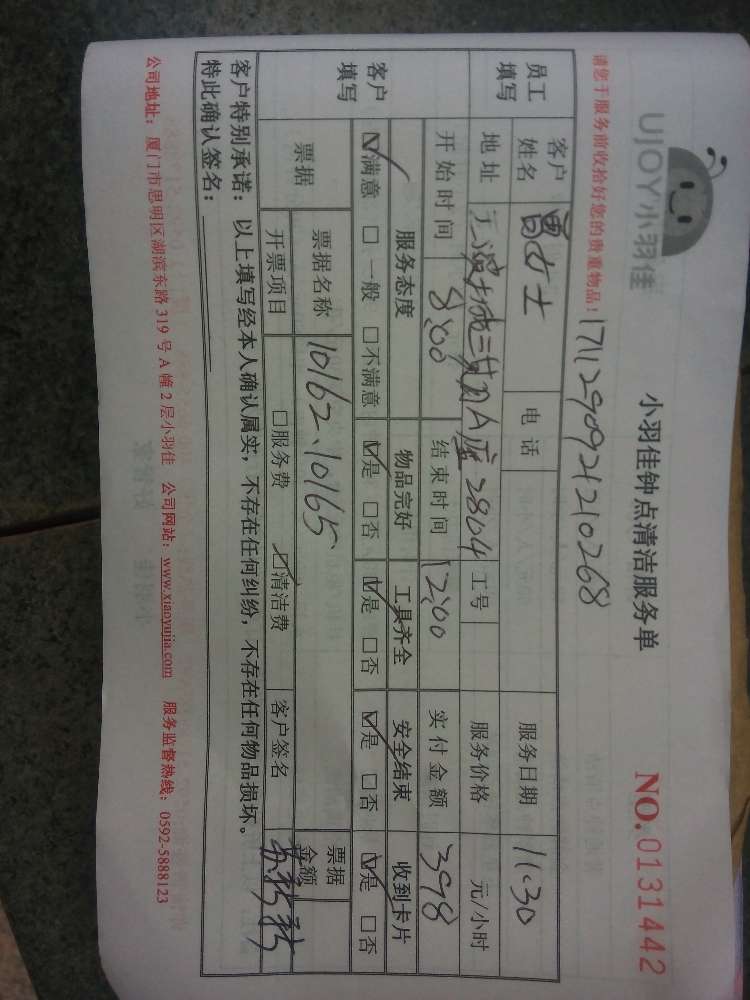 UJOY小羽佳
小羽佳钟点清洁服务单
NO.0131442
请您于服务前收拾好您的贵重物品！
171129092121 0268
员工填写 客户姓名 曾女士 电话 服务日期 11.30
地址 三期A座2804 工号 服务价格 元/小时
开始时间 8:00 结束时间 12:00 实付金额 398
客户填写 服务态度 物品完好 工具齐全 安全结束 收到卡片
☑满意 □一般 □不满意 ☑是 □否 ☑是 □否 ☑是 □否 ☑是 □否
票据 票据名称 10162、10165 票据金额
开票项目 □服务费 ☑清洁费 客户签名
客户特别承诺：以上填写经本人确认属实，不存在任何纠纷，不存在任何物品损坏。
特此确认签名：
公司地址：厦门市思明区湖滨东路319号A幢2层小羽佳 公司网站：www.xiaoyujia.com 服务监督热线：0592-5888123